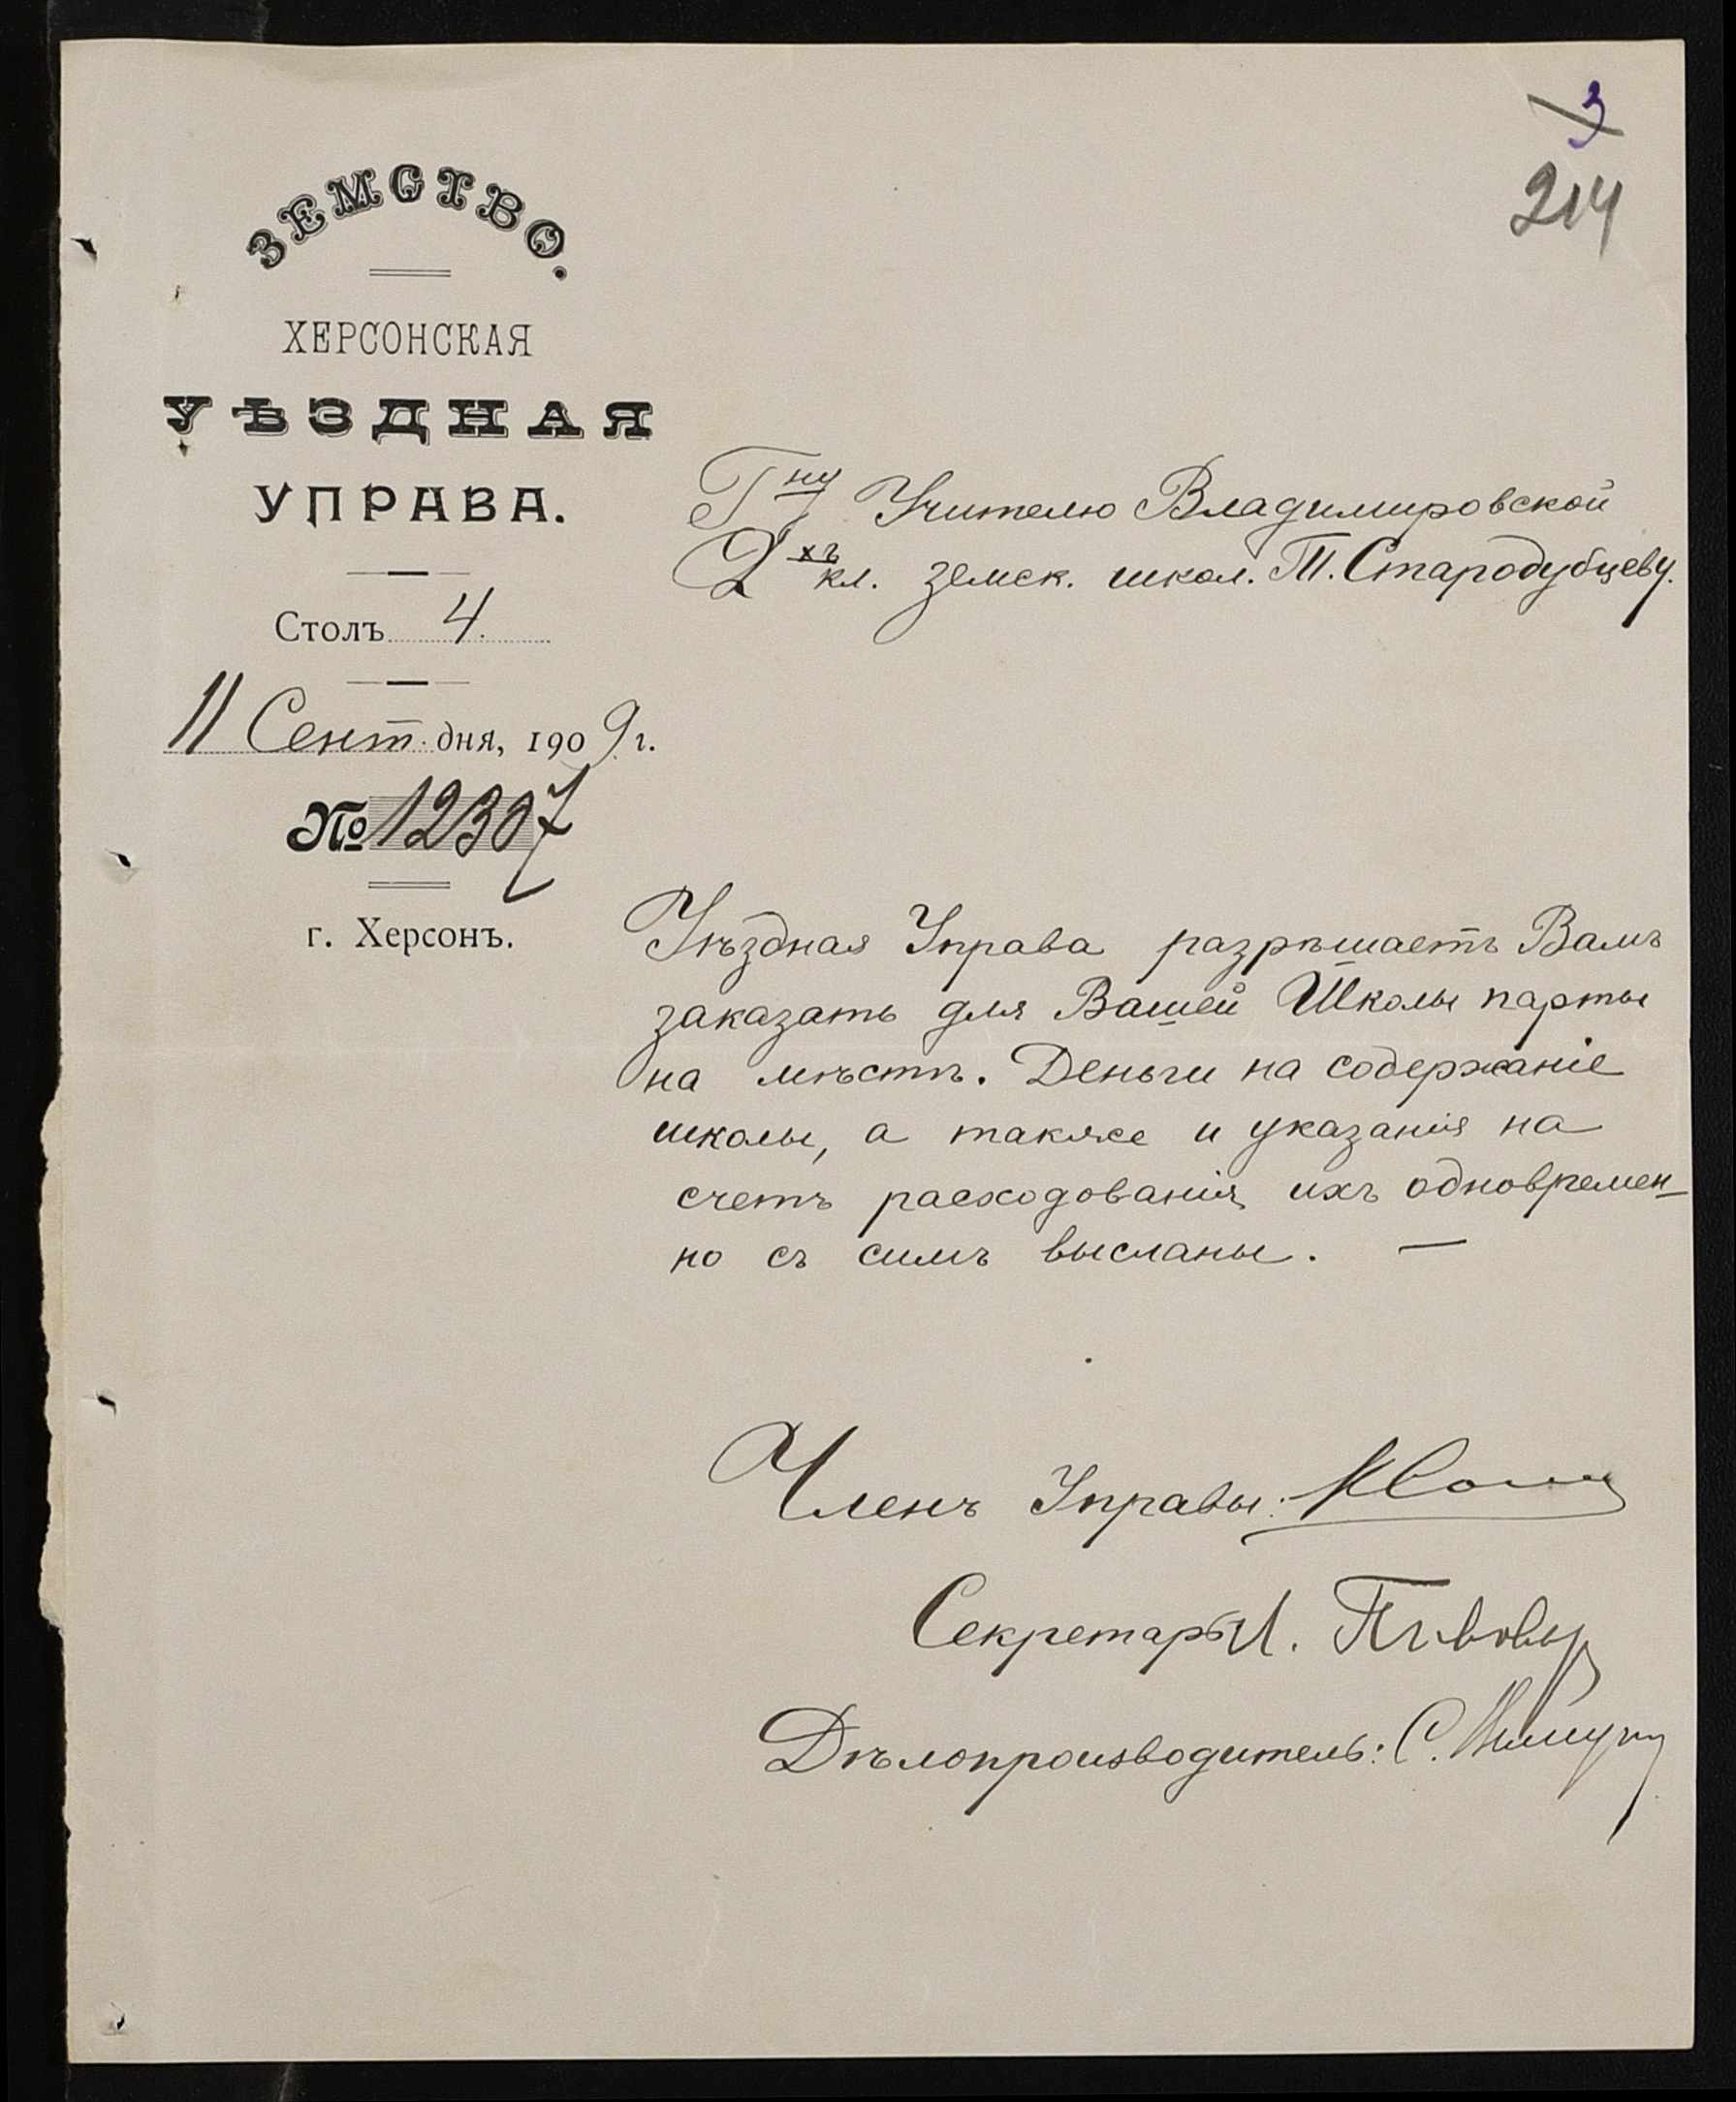 3
214
ЗЕМСТВО.
ХЕРСОНСКАЯ
УѢЗДНАЯ
УПРАВА.
Столъ 4.
11 Сент. дня, 1909 г.
№ 12307
г. Херсонъ.
Гну Учителю Владимировской
2хъ кл. земск. школ. Т. Стародубцеву.
Уѣздная Управа разрѣшаетъ Вамъ
заказать для Вашей Школы парты
на мѣстѣ. Деньги на содержаніе
школы, а также и указанія на
счетъ расходованія ихъ одновремен-
но съ симъ высланы. —
Членъ Управы:
Секретарь
Дѣлопроизводитель: С.